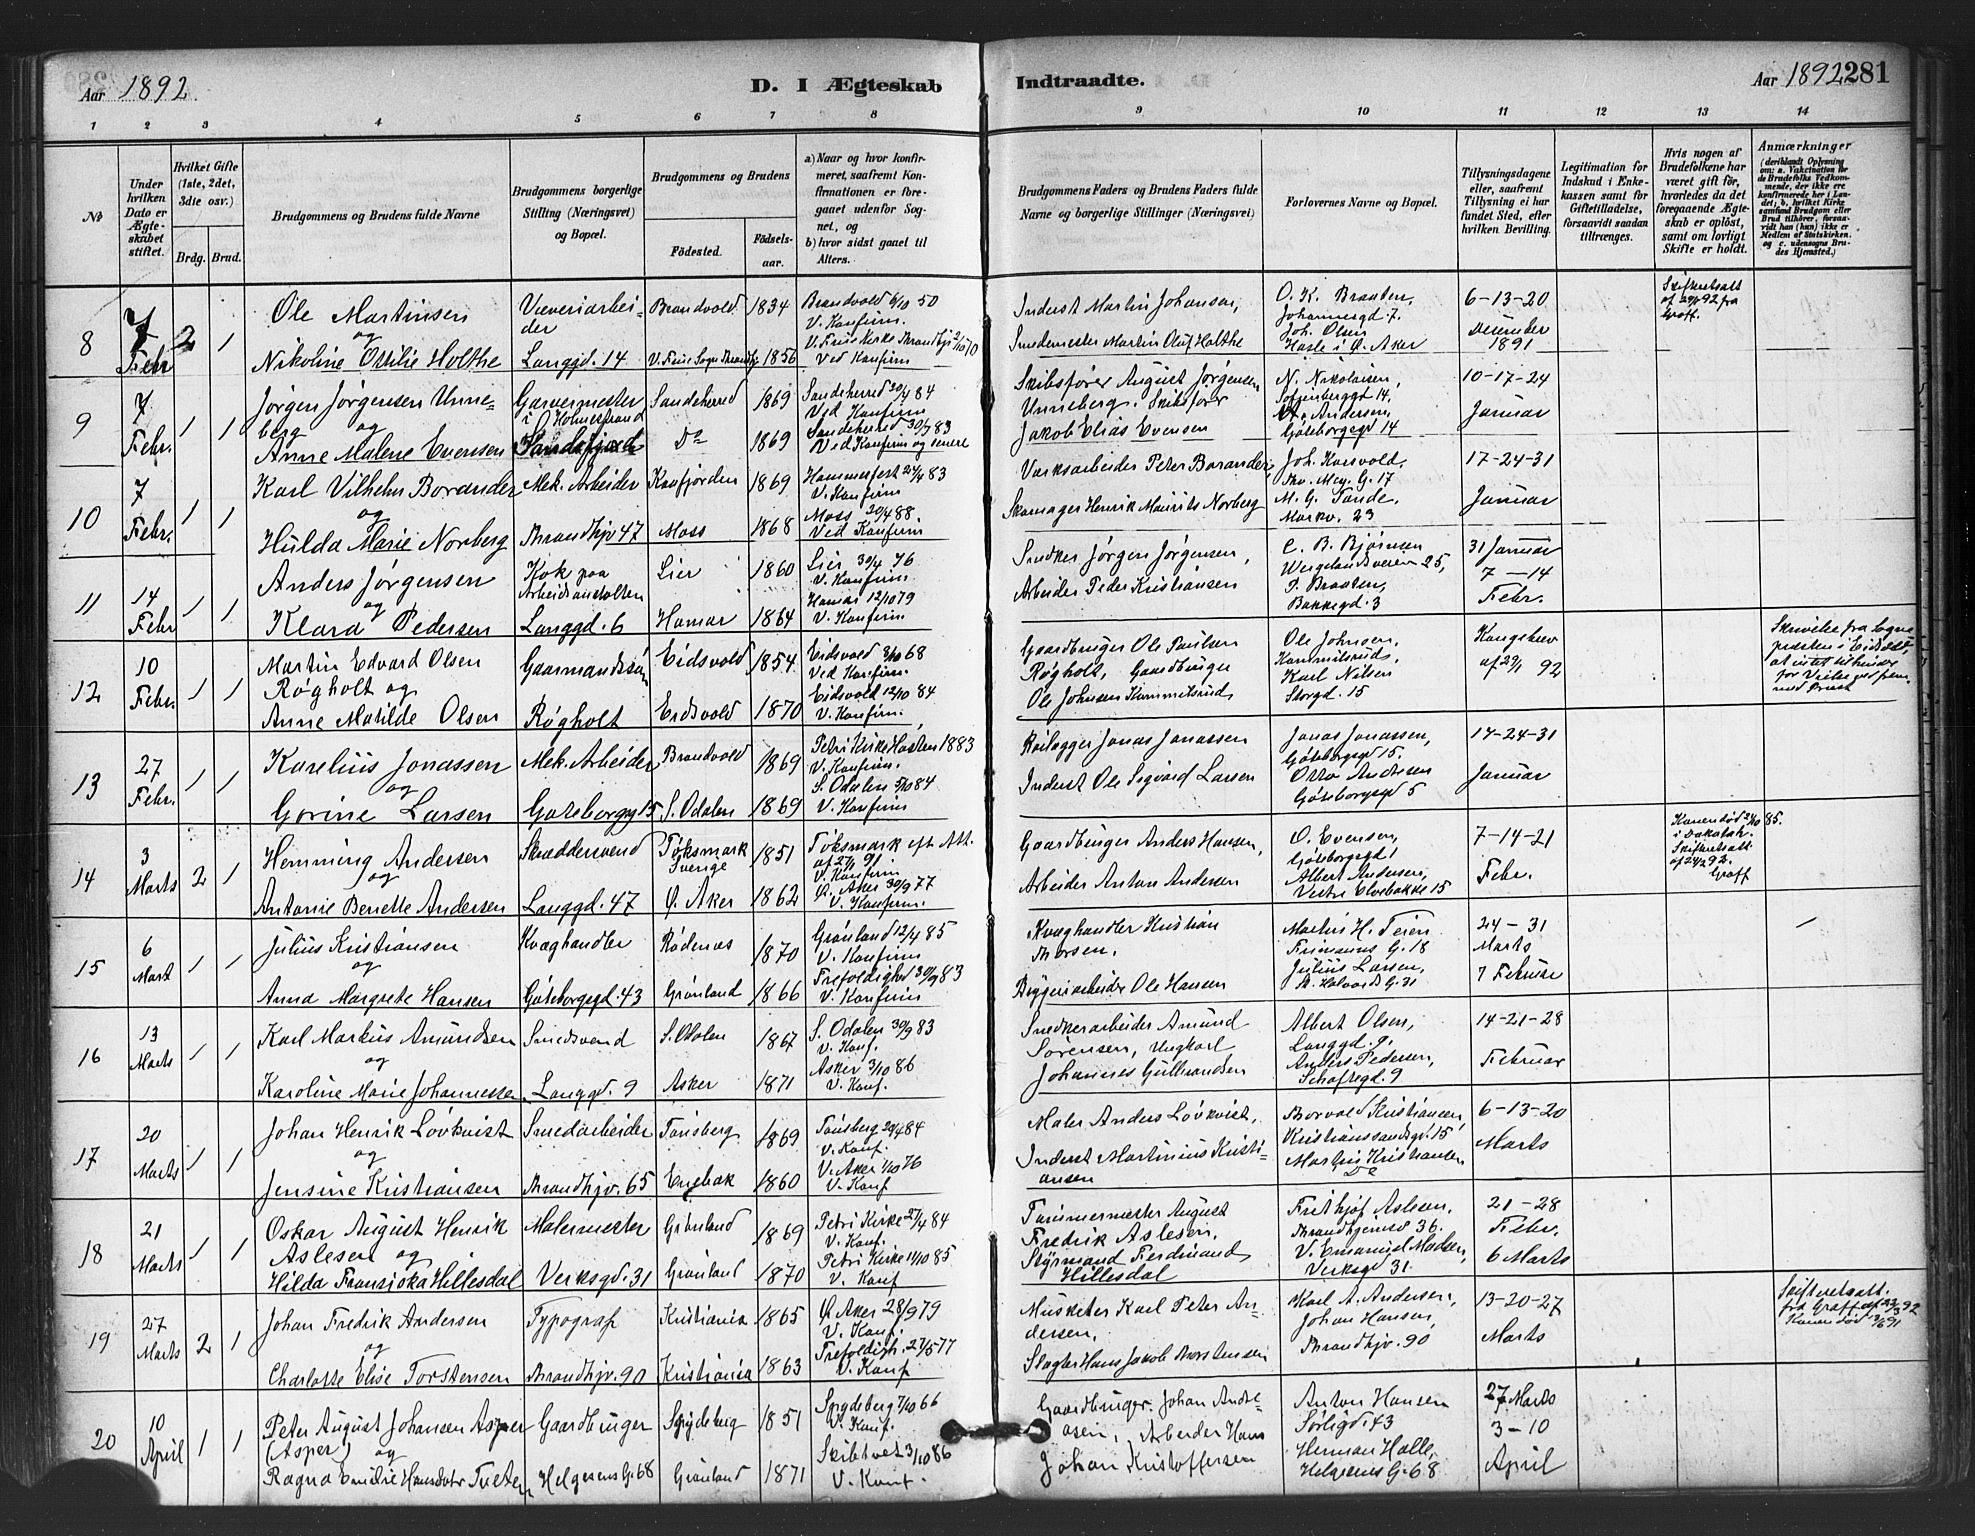 Aar 1892.
D. I Ægteskab
Indtraadte.
Aar 1892 281
1 2 3 4 5 6 7 8 9 10 11 12 13 14
No
Under hvilken Dato er Ægteskabet stiftet.
Hvilket Gifte (1ste, 2det, 3die osv.)
Brdg. Brud.
Brudgommens og Brudens fulde Navne
Brudgommens borgerlige Stilling (Næringsvei) og Bopæl.
Brudgommens og Brudens
Fødested.
Fødselsaar.
a) Naar og hvor konfirmeret, saafremt Konfirmationen er foregaaet udenfor Sognet, og
b) hvor sidst gaaet til Alters.
Brudgommens Faders og Brudens Faders fulde Navne og borgerlige Stillinger (Næringsvei)
Forlovernes Navne og Bopæl.
Tillysningsdagene eller, saafremt Tillysning ei har fundet Sted, efter hvilken Bevilling.
Legitimation for Indskud i Enkekassen samt for Giftetilladelse, forsaavidt saadan tiltrænges.
Hvis nogen af Brudefolkene har været gift før, hvorledes da det foregaaende Ægteskab er opløst, samt om lovligt Skifte er holdt.
Anmærkninger
(deriblandt Oplysning om: a. Vaccination for de Brudefolks Vedkommende, der ikke ere konfirmerede her i Landet, b. hvilket Kirkesamfund Brudgom eller Brud tilhører, forsaavidt han (hun) ikke er Medlem af Statskirken, og c. udensogns Brudes Hjemsted.)
8
7 Febr
2 1
Ole Martinsen
og
Nikoline Ottilie Holthe
Væveriarbeider
Langgd. 14
Brandvold 1834
1856
Brandvold 6/10 50
V. Konfirm.
Ved Konfirm
Inderst Martin Johansen,
Smedemester Martin Oluf Holthe
O. K. Braaten,
Johannesgd. 7.
Joh. Olsen
Hasle i Ø. Aker
6-13-20
December
1891
Skifteretsatt
92 fra
Graff.
9
7 Febr.
1 1
Jørgen Jørgensen Unneberg
og
Anne Malene Evensen
Garvermester
i Holmestrand
Sandefjord
Sandeherred 1869
Do 1869
Sandeherred 20/4 84
Ved Konfirm
Sandeherred 30/9 83
Ved Konfirm og senere
Skibsfører August Jørgensen
Unneberg. Skibsfører
Jakob Elias Evensen
N. Nikolaisen,
Sofienberggd 14,
Andersen,
Göteborggd 14
10-17-24
Januar
10
7 Febr.
1 1
Karl Vilhelm Borander
og
Hulda Marie Norberg
Mek. Arbeider
Throndhjv 47
Kaafjorden 1869
Moss 1868
Hammerfest 24/4 83
V. Konfirm
Moss 20/4 88
Ved Konfirm
Værksarbeider Peter Borander,
Skomager Henrik Maurits Norberg
Joh. Korsvold,
Thv. Mey. G. 17
M. G. Tande,
Markv. 23
17-24-31
Januar
11
14 Febr
1 1
Anders Jørgensen
og
Klara Pedersen
Kok paa
Arbeidsanstalten
Langgd. 6
Lier 1860
Hamar 1864
Lier 30/4 76
V. Konfirm.
Hamar 12/10 79
V. Konfirm
Snedker Jørgen Jørgensen,
Arbeider Peder Kristiansen
C. B. Bjørnsen
Wergelandsveien 25,
Braaten,
Bakkegd. 3
31 Januar
7 - 14
Febr.
12
10 Febr.
1 1
Martin Edvard Olsen
Røgholt og
Anne Matilde Olsen
Gaarmandssøn
Røgholt
Eidsvold 1854
Eidsvold 1870
Eidsvold 3/10 68
Ved Konfirm
Eidsvold 12/10 84
V. Konfirm.
Gaardbruger Ole Paulsen
Røgholt, Gaardbruger
Ole Johnsen Kummelsrud,
Ole Johnsen
Kummelsrud,
Karl Nilsen
Storgd. 15
Kongebrev
af 29/1 92
Skrivelse fra Sogne
præsten i Eidsvold,
at intet til hinder
for Vielse
13
27 Febr.
1 1
Karelius Jonassen
og
Gorine Larsen
Mek. Arbeider
Göteborggd 15
Brandvold 1869
S. Odalen 1869
Petri Kirke Høsten 1883
V. Konfirm.
S. Odalen 5/10 84
V. Konfirm
Jonas Jonassen
Inderst Ole Sigvard Larsen
Jonas Jonassen,
Göteborggd 15.
Otto Andersen
Göteborggd 5
17-24-31
Januar
14
3 Marts
2 1
Hemming Andersen
og
Antonie Benette Andersen
Skræddersvend
Langgd. 47
Töksmark
Sverige 1851
Ø. Aker 1862
Töksmark eft Att.
af 27/1 91
V. Konfirm
Ø. Aker 30/9 77
V. Konfirm.
Gaardbruger Anders Hansen,
Arbeider Anton Andersen
O. Evensen,
Göteborggd 1
Albert Andersen,
Vestre Elvebakke 15
7-14-21
Febr.
Konen død 85.
i Dakotah.
Skifteretsatt.
92.
Graff
15
6 Mart
1 1
Julius Kristiansen
og
Anna Margrete Hansen
Kvæghandler
Göteborggd. 43
Rødenæs 1870
Grønland 1866
Grønland 12/4 85
V. Konfirm
Trefoldighed 30/9 83
V. Konfirm
Kvæghandler Kristian
Thorsen.
Byggeriarbeider Ole Hansen
Martin H. Teien
Frimanns G. 18
Julius Larsen,
St. Halvards G. 31
24-31
Marts
7 Februar
16
13 Marts
1 1
Karl Markus Amundsen
og
Karoline Marie Johannessen
Smedsvend
Langgd. 9
S. Odalen 1867
Asker 1871
S. Odalen 30/9 83
V. Konf.
Asker 3/10 86
V. Konf.
Snedkerarbeider Amund
Sørensen, Ungkarl
Johannes Gulbrandsen
Albert Olsen,
Langgd. 9.
Anders Pedersen,
Schaftsgd. 9
14-21-28
Februar
17
20 Marts
1 1
Johan Henrik Lövkvist
og
Jensine Kristiansen
Smedarbeider
Throndhjv. 65
Tønsberg 1869
Enebak 1860
Tønsberg 20/4 84
V. Konf.
V. Aker 1/10 76
V. Konf
Maler Anders Lövkvist,
Inderst Martinius Kristiansen
Borvald Kristiansen
Kristianssandsgd. 15
Martin Kristiansen
Do
6-13-20
Marts
18
21 Marts
1 1
Oskar August Henrik
Aslesen og
Hilda Fransiska Hillesdal
Malermester
Verksgd. 31
Grønland 1869
Grønland 1870
Petri Kirke 27/4 84
V. Konf.
Petri Kirke 11/10 85
V. Konf
Tømmermester August
Fredrik Aslesen,
Styrmand Ferdinand
Hillesdal
Frithjof Aslesen,
Throndhjemsv 36.
V. Emanuel Madsen,
Verksgd 31.
21-28
Febr.
6 Marts
19
27 Marts
2 1
Johan Fredrik Andersen
og
Charlotte Elise Torstensen
Typograf
Throndhjv. 90
Kristiania 1865
Kristiania 1863
Ø. Aker 28/9 79
V. Konf.
Trefoldigh. 27/5 77
V. Konf
Musketer Karl Peter Andersen,
Slagter Hans Jakob Thorstensen
Karl A. Andersen,
Johan Hansen,
Throndhjv. 90
13-20-27
Marts
Skifteretsatt.
fra Graff af 23/3 92
Konen død 91
20
10 April
1 1
Peter August Johansen Asper
(Asper) og
Ragna Emilie Hansdatter Tveten
Gaardbruger
Helgesens G. 68
Spydeberg 1851
Grønland 1871
Spydeberg 7/10 66
V. Konf.
Skibtvet 3/10 86
V. Konf.
Gaardbruger. Johan Andreasen, Arbeider Hans
Johan Kristoffersen
Anton Hansen
Sørligd. 43
Herman Halle,
Helgesens G. 68
27 Marts
3-10
April